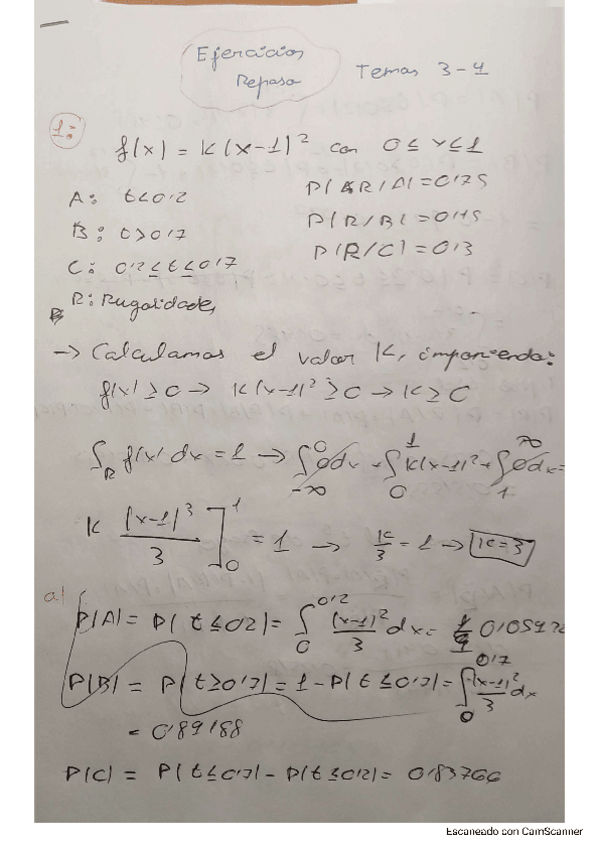 Ejercicios
Repaso
Temas 3-4
1:
f(x) = K(x-1)² con 0 ≤ x ≤ 1
A: t<0'2
P(R/A)=0'75
B: t>0'7
P(R/B)=0'45
C: 0'2≤t≤0'7
P(R/C)=0'3
R: Rugosidades
→ Calculamos el valor K, imponiendo:
f(x) ≥ 0 → K(x-1)² ≥ 0 → K ≥ 0
∫R f(x) dx = 1 → ∫-∞^0 0dx + ∫0^1 K(x-1)² + ∫1^∞ 0dx =
K (x-1)³/3 ]0^1 = 1 → K/3 = 1 → K=3
a)
P(A) = P(t≤0'2) = ∫0^0'2 (x-1)²/3 dx =
P(B) = P(t≥0'7) = 1 - P(t≤0'7) = ∫0^0'7 (x-1)²/3 dx
= 0'89188
P(C) = P(t≤0'7) - P(t≤0'2) = 0'83766
Escaneado con CamScanner